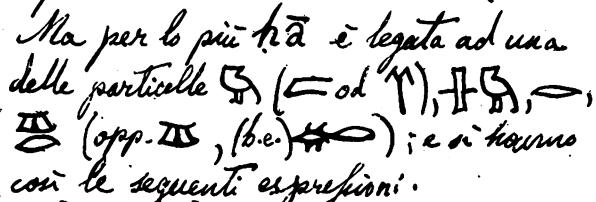 Ma per lo più hā è legata ad una
delle particelle 𓅓 (𓐝 od ), 𓏶𓅓, 𓂋,
(opp. , (b.e.) ); e si hanno
così le seguenti espreſsioni.